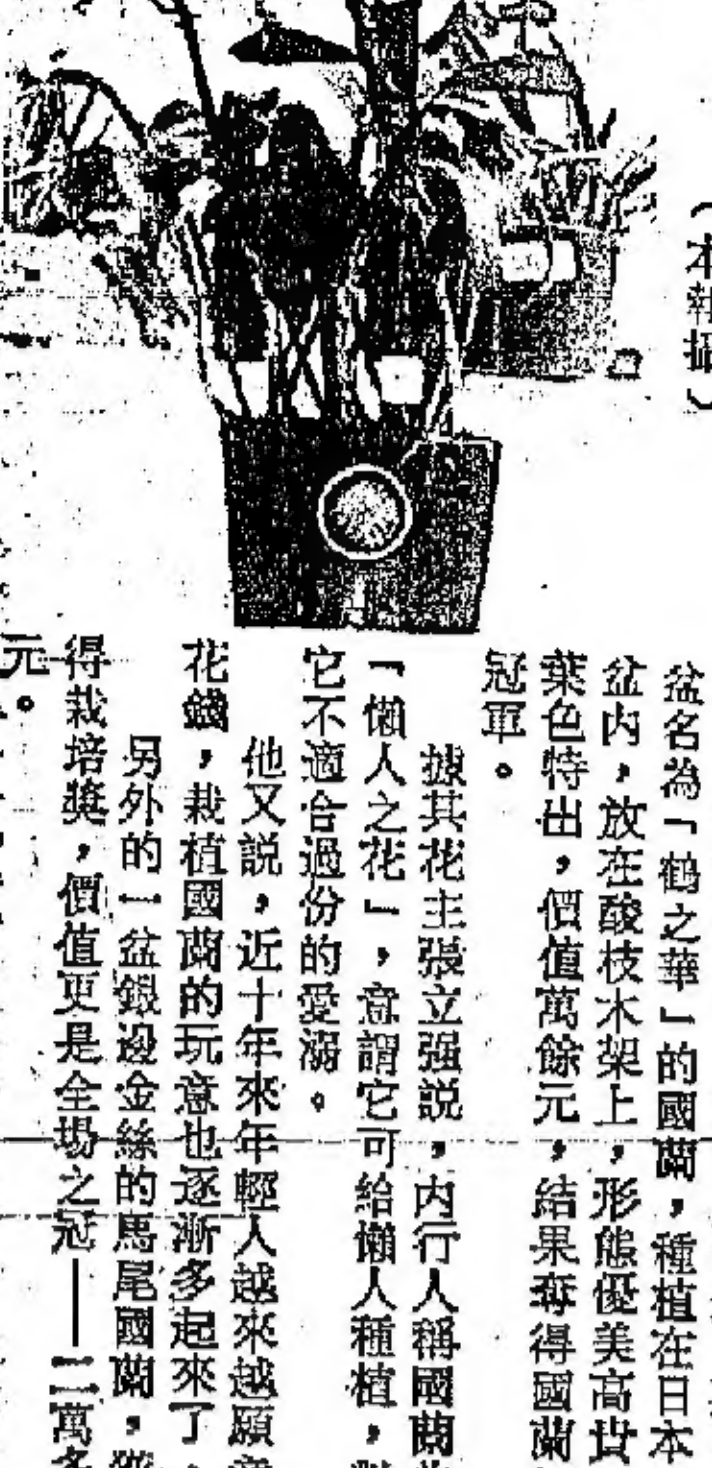 （本報攝）
盆名為「鶴之華」的國蘭，種植在日本
盆內，放在酸枝木架上，形態優美高貴
葉色特出，價值萬餘元，結果奪得國蘭
冠軍。
據其花主張立强説，內行人稱國蘭
「懶人之花」，意謂它可給懶人種植，
它不適合過份的愛溺。
他又説，近十年來年輕人越來越願
花錢，栽植國蘭的玩意也逐漸多起來了，
另外的一盆銀邊金絲的馬尾國蘭，
得栽培奬，價值更是全場之冠——二萬多
元。